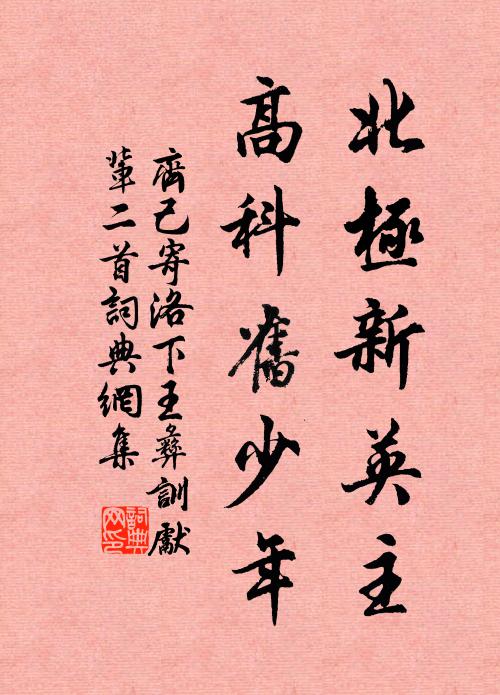 北極新英主
高科舊少年
齊己寄洛下王彝訓獻
輩二首詞典網集
詞典
网印